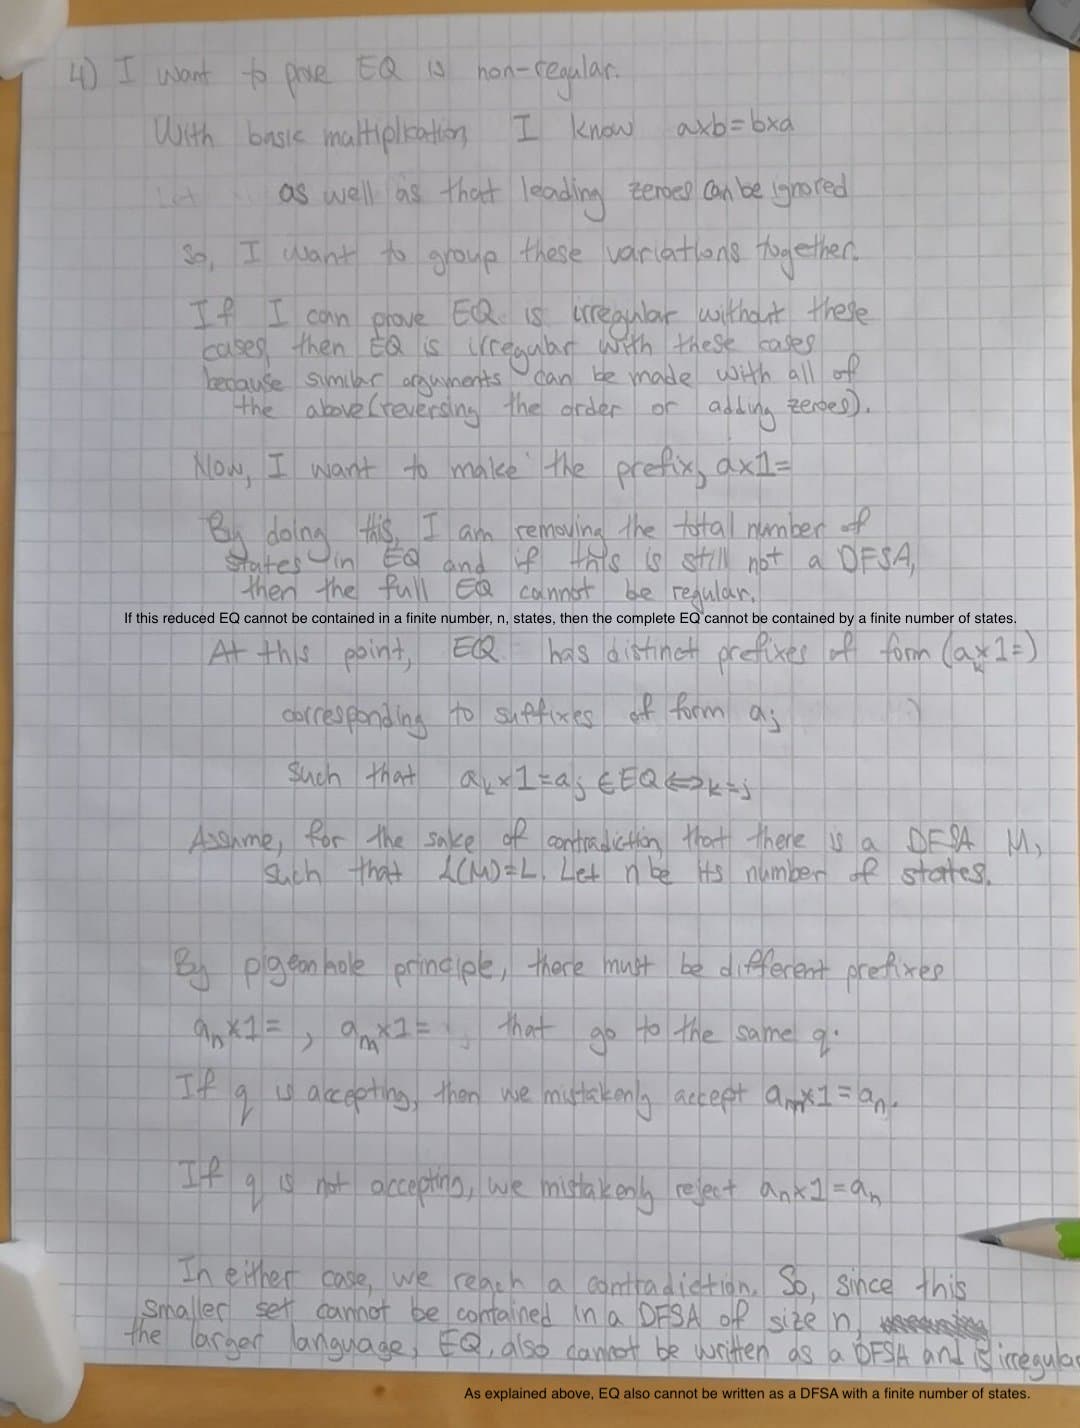 4) I want to prove EQ is non-regular.
With basic multiplication, I know axb=bxa
Let as well as that leading zeroes can be ignored
So, I want to group these variations together.
If I can prove EQ is irregular without these
cases, then EQ is irregular with these cases
because similar arguments can be made with all of
the above (reversing the order or adding zeroes).
Now, I want to make the prefix, ax1=
By doing this, I am removing the total number of
states in EQ and if this is still not a DFSA,
then the full EQ cannot be regular.
If this reduced EQ cannot be contained in a finite number, n, states, then the complete EQ cannot be contained by a finite number of states.
At this point, EQ has distinct prefixes of form (aₖx1=)
corresponding to suffixes of form aⱼ
Such that aₖx1=aⱼ ∈ EQ ⟺ k=j
Assume, for the sake of contradiction, that there is a DFSA M,
such that L(M)=L. Let n be its number of states.
By pigeonhole principle, there must be different prefixes
aₙx1= , aₘx1= , that go to the same q.
If q is accepting, then we mistakenly accept aₘx1=aₙ.
If q is not accepting, we mistakenly reject aₙx1=aₙ
In either case, we reach a contradiction. So, since this
smaller set cannot be contained in a DFSA of size n,
the larger language, EQ, also cannot be written as a DFSA and is irregular
As explained above, EQ also cannot be written as a DFSA with a finite number of states.